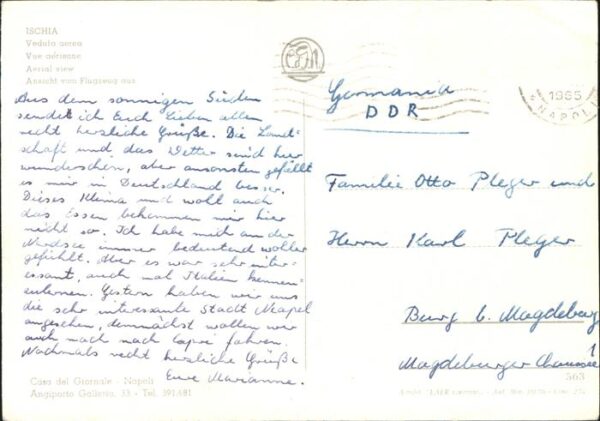 ISCHIA
Veduta aerea
Vue aérienne
Aerial view
Ansicht vom Flugzeug aus
Aus dem sonnigen Süden
sendet ich Euch lieben allen
recht herzliche Grüße. Die Land-
schaft und das Wetter sind hier
wunderschön, aber ansonsten gefällt
es mir in Deutschland besser.
Dieses Klima und wohl auch
das Essen bekommen mir hier
nicht so. Ich habe mich an der
Nordsee immer bedeutend woller
gefühlt. Aber es war sehr inter-
essant, auch mal Italien kennen-
zulernen. Gestern haben wir uns
die sehr interessante Stadt Neapel
angesehen, demnächst wollen wir
auch noch nach Capri fahren.
Nochmals recht herzliche Grüße
Eure Marianne.
Casa del Giornale - Napoli
Angiporto Galleria, 33 - Tel. 391481
1965
NAPOLI
Germania
DDR
Familie Otto Pleger und
Herrn Karl Pleger
Burg b. Magdeburg
Magdeburger Chaussee 1
563